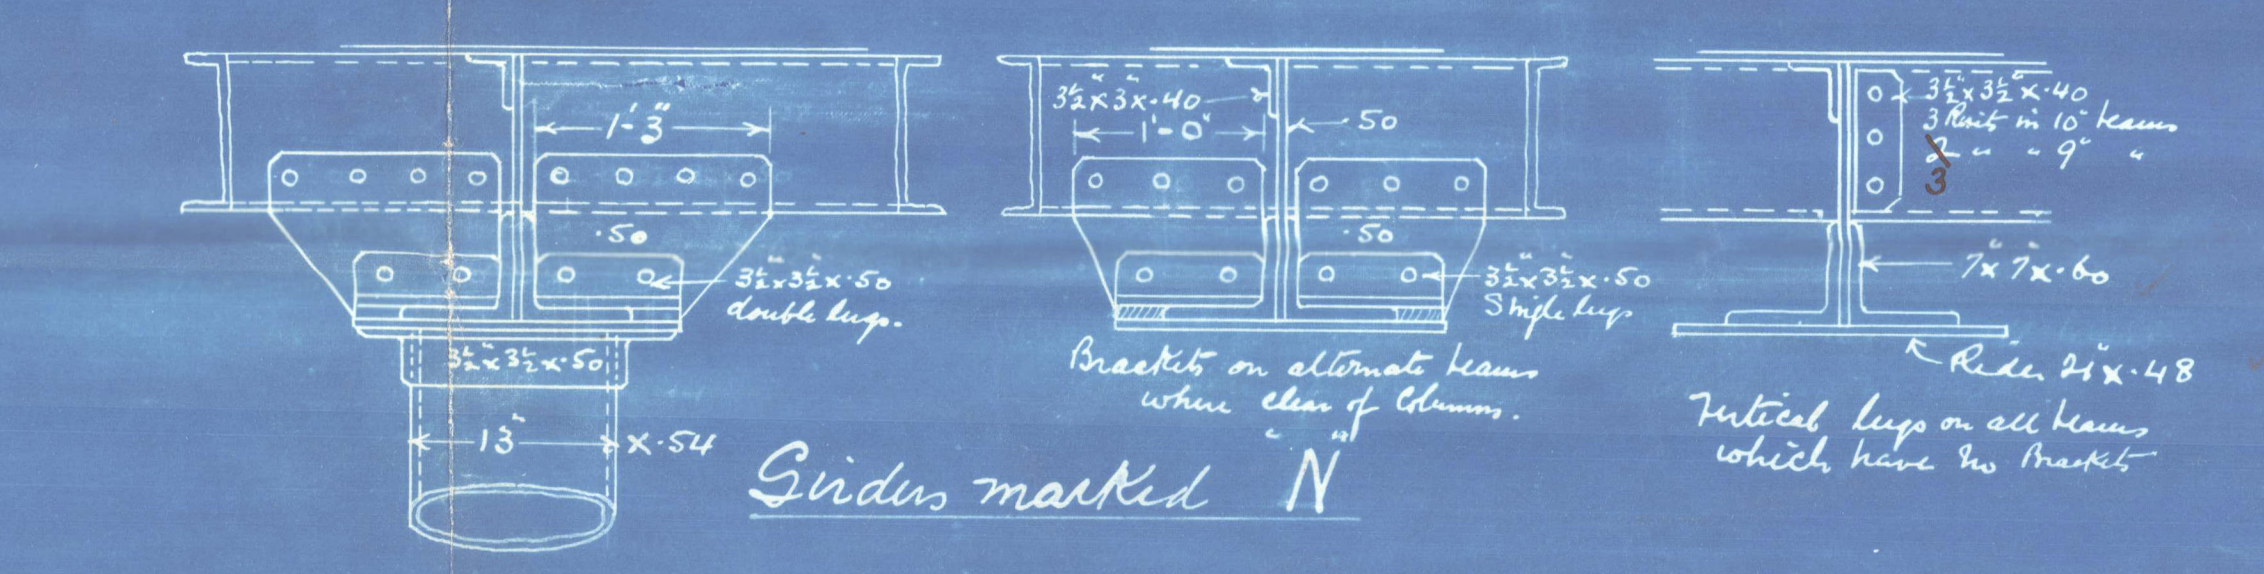 1'-3"
·50
3½"x3½"x·50
double lugs.
3½"x3½"x·50
13" x·54
3½"x3"x·40
50
1'-0"
·50
3½"x3½"x·50
Single lugs
Brackets on alternate beams
where clear of Columns.
Girders marked "N"
3½"x3½"x·40
3 Rivits in 10" beams
2 " " 9" "
3
7"x7"x·60
Rider 21"x·48
Vertical lugs on all beams
which have no Brackets